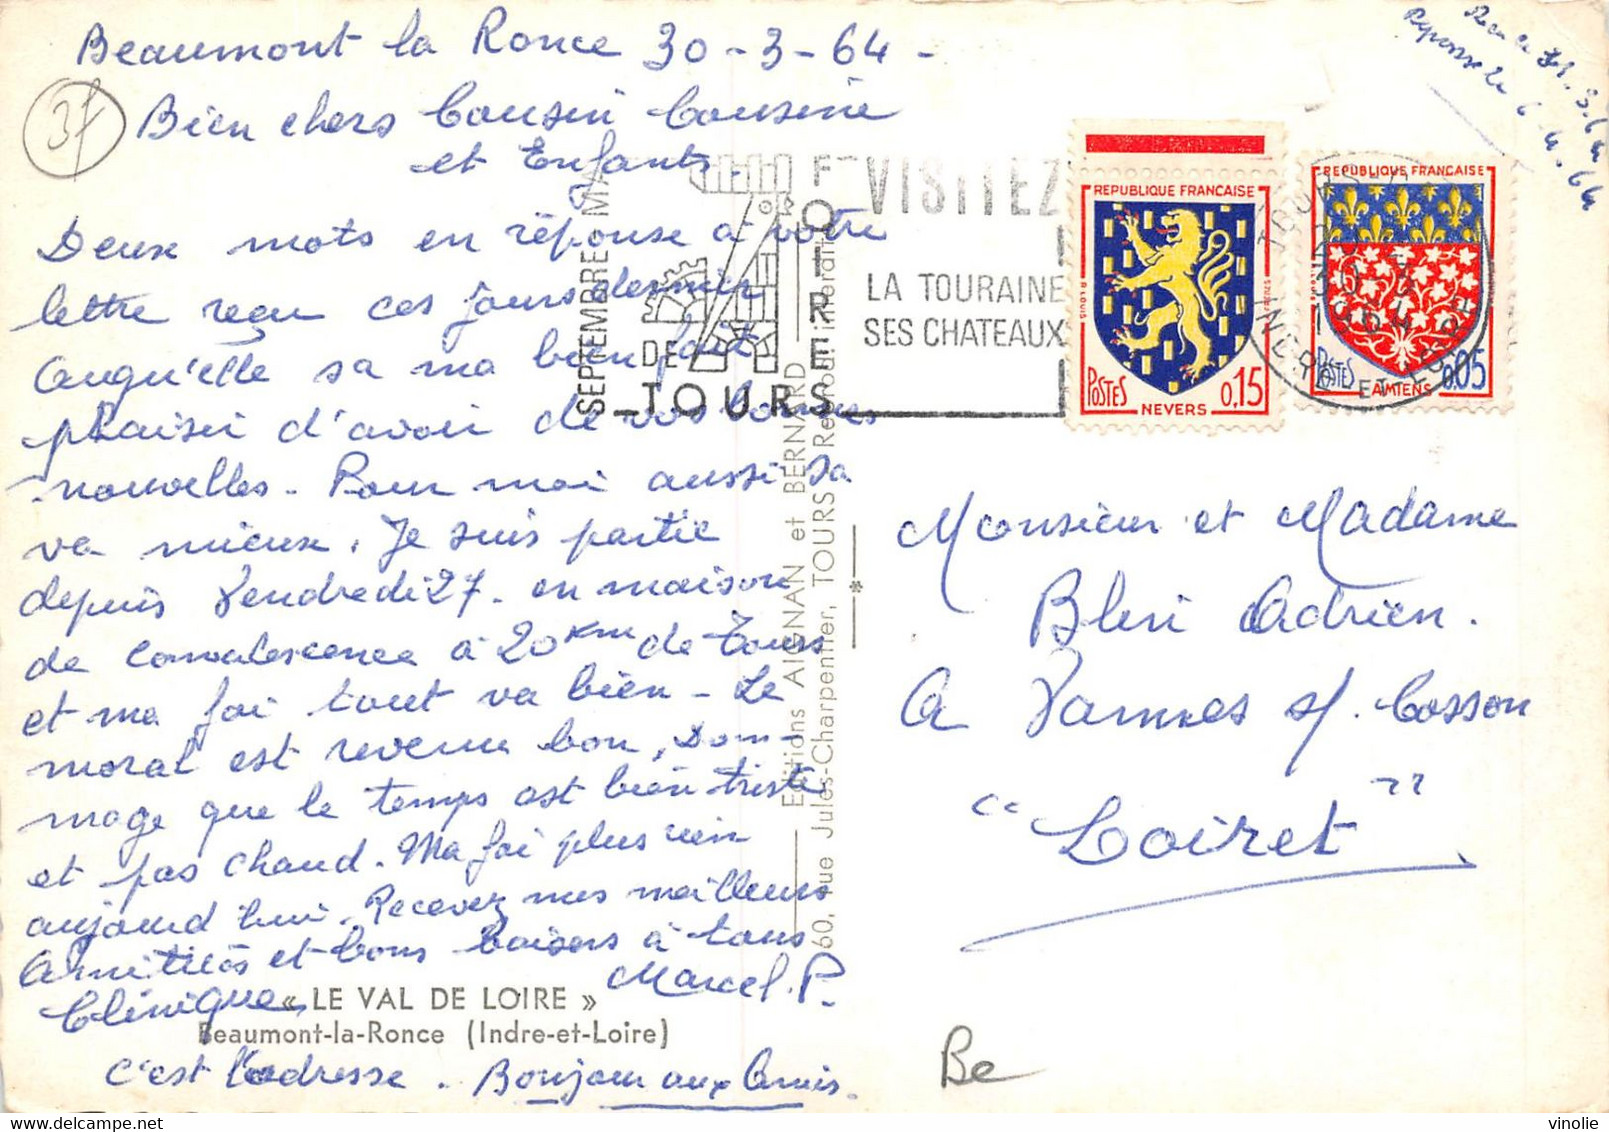 Beaumont la Ronce 30-3-64-
3f
Bien chers Cousin Cousine
et Enfants.
Deux mots en réponse à votre
lettre reçu ces jours dernier
Auqu'elle sa ma bien fait
plaisir d'avoir de vos bonnes
nouvelles - Pour moi aussi sa
va mieux. Je suis partie
depuis Vendredi 27. en maison
de convalescence à 20 Km de Tours
et ma foi tout va bien - Le
moral est revenu bon, Dom-
mage que le temps est bien triste
et pas chaud. Ma foi plus rien
aujourd hui. Recevez mes meilleurs
Amitiés et bons baisers à tous
Marcel. P.
Clinique
« LE VAL DE LOIRE »
Beaumont-la-Ronce (Indre-et-Loire)
c'est l'adresse. Bonjour aux Amis.
Editions AIGNAN et BERNARD
60, rue Jules-Charpentier, TOURS
SEPTEMBRE - MAI
FOIRES
DE
TOURS
VISITEZ
LA TOURAINE
SES CHATEAUX
REPUBLIQUE FRANÇAISE
POSTES
0,15
NEVERS
REPUBLIQUE FRANÇAISE
POSTES
0,05
AMIENS
TOURS
INDRE ET LOIRE
Réponse le 6-4-64
Monsieur et Madame
Bleri Adrien.
A Vannes s/. Cosson
"Loiret"
Be
vinolie